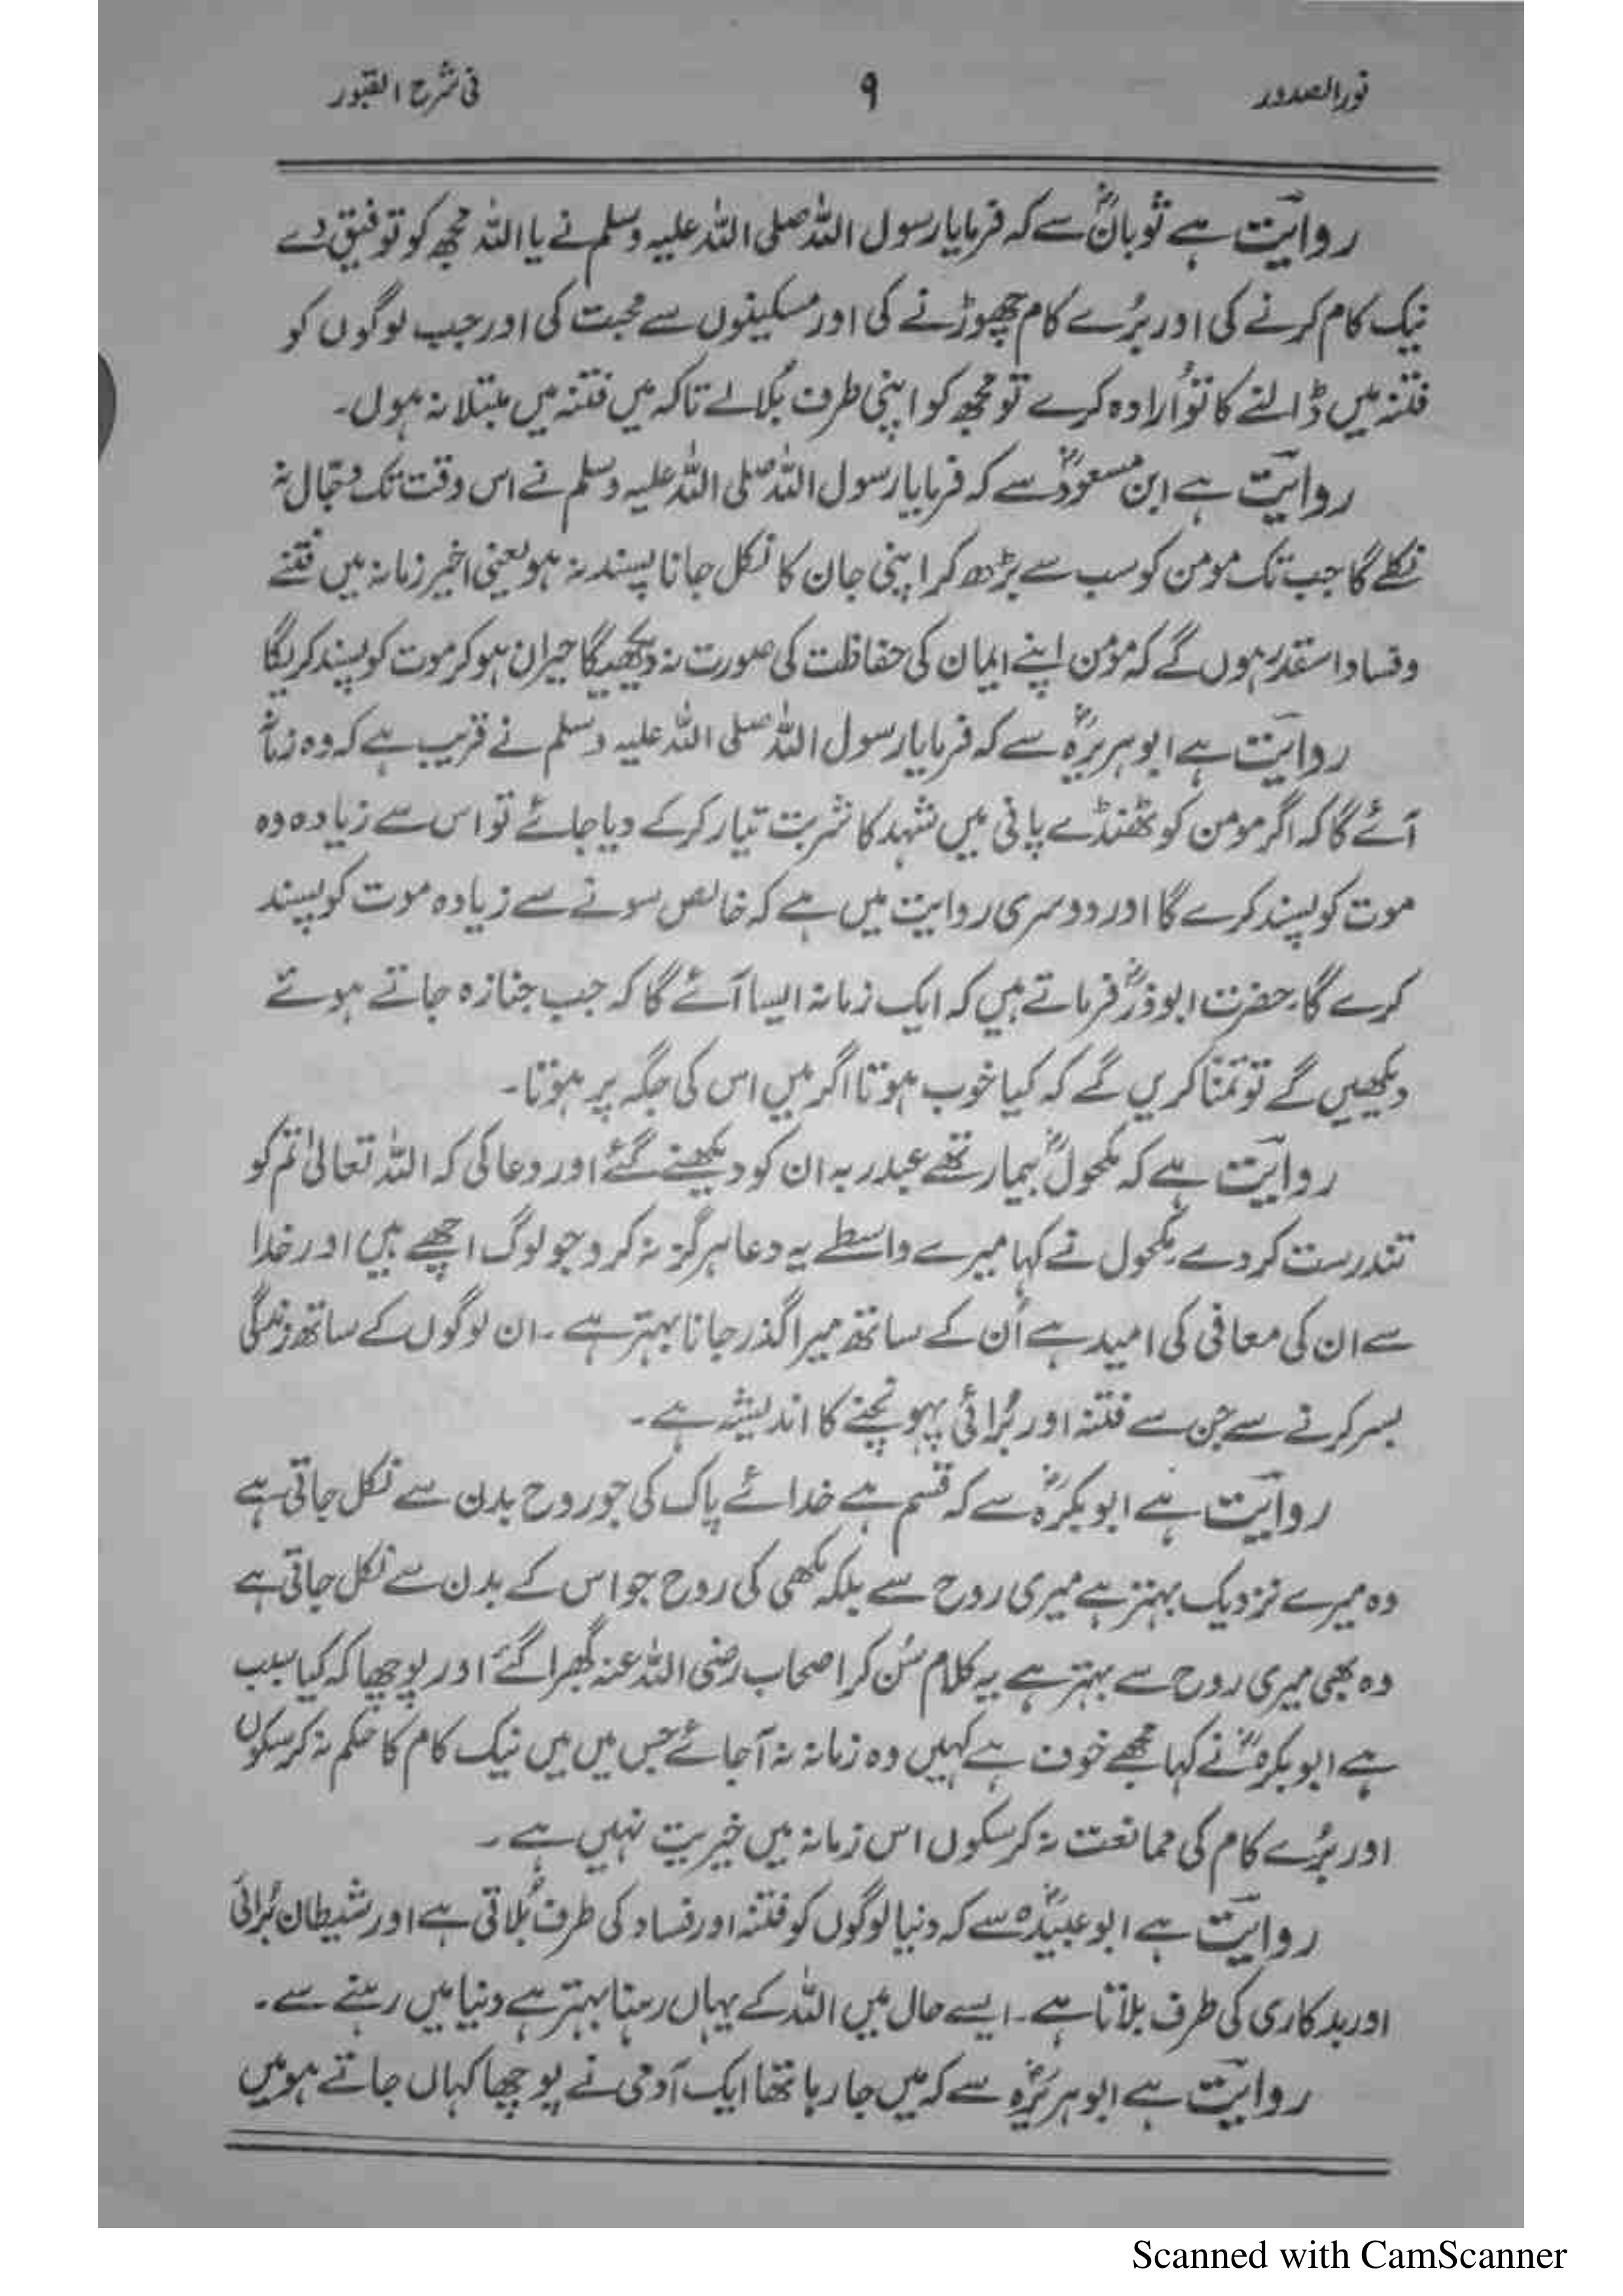 نورالصدور ۹ فی شرح القبور
روایت ہے ثوبانؓ سے کہ فرمایا رسول اللہ صلی اللہ علیہ وسلم نے یا اللہ مجھ کو توفیق دے
نیک کام کرنے کی اور بُرے کام چھوڑنے کی اور مسکینوں سے محبت کی اور جب لوگوں کو
فتنہ میں ڈالنے کا تو ارادہ کرے تو مجھ کو اپنی طرف بُلالے تاکہ میں فتنہ میں مبتلا نہ ہوں۔
روایت ہے ابن مسعودؓ سے کہ فرمایا رسول اللہ صلی اللہ علیہ وسلم نے اس وقت تک دجّال نہ
نکلے گا جب تک مومن کو سب سے بڑھ کر اپنی جان کا نکل جانا پسند نہ ہو یعنی اخیر زمانہ میں فتنے
وفساد اسقدر ہوں گے کہ مؤمن اپنے ایمان کی حفاظت کی صورت نہ دیکھیگا حیران ہوکر موت کو پسند کریگا
روایت ہے ابوہریرہؓ سے کہ فرمایا رسول اللہ صلی اللہ علیہ وسلم نے قریب ہے کہ وہ زمانہ
آئے گا کہ اگر مومن کو ٹھنڈے پانی میں شہد کا شربت تیار کرکے دیا جائے تو اس سے زیادہ وہ
موت کو پسند کرے گا اور دوسری روایت میں ہے کہ خالص سونے سے زیادہ موت کو پسند
کرے گا۔ حضرت ابوذرؓ فرماتے ہیں کہ ایک زمانہ ایسا آئے گا کہ جب جنازہ جاتے ہوئے
دیکھیں گے تو تمنّا کریں گے کہ کیا خوب ہوتا اگر میں اس کی جگہ پر ہوتا۔
روایت ہے کہ مکحولؓ بیمار تھے عبدربہ ان کو دیکھنے گئے اور دعا کی کہ اللہ تعالیٰ تم کو
تندرست کردے مکحول نے کہا میرے واسطے یہ دعا ہرگز نہ کرو جو لوگ اچھے ہیں اور خدا
سے ان کی معافی کی امید ہے اُن کے ساتھ میرا گذر جانا بہتر ہے ۔ ان لوگوں کے ساتھ زندگی
بسر کرنے سے جن سے فتنہ اور بُرائی پہونچنے کا اندیشہ ہے ۔
روایت ہے ابوبکرہؓ سے کہ قسم ہے خدائے پاک کی جو روح بدن سے نکل جاتی ہے
وہ میرے نزدیک بہتر ہے میری روح سے بلکہ مکھی کی روح جو اس کے بدن سے نکل جاتی ہے
وہ بھی میری روح سے بہتر ہے یہ کلام سُن کر اصحاب رضی اللہ عنہ گھبرا گئے اور پوچھا کہ کیا سبب
ہے ابوبکرہؓ نے کہا مجھے خوف ہے کہیں وہ زمانہ نہ آجائے جس میں میں نیک کام کا حکم نہ کرسکوں
اور بُرے کام کی ممانعت نہ کرسکوں اس زمانہ میں خیریت نہیں ہے ۔
روایت ہے ابوعبیدہؓ سے کہ دنیا لوگوں کو فتنہ اور فساد کی طرف بُلاتی ہے اور شیطان بُرائی
اور بدکاری کی طرف بلاتا ہے ۔ ایسے حال میں اللہ کے یہاں رہنا بہتر ہے دنیا میں رہنے سے ۔
روایت ہے ابوہریرہؓ سے کہ میں جارہا تھا ایک آدمی نے پوچھا کہاں جاتے ہو میں
Scanned with CamScanner